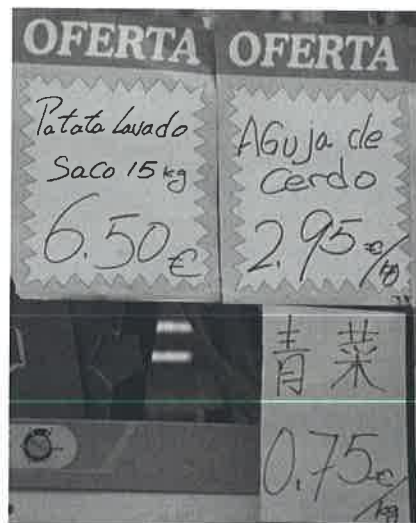 OFERTA
Patata Lavado
Saco 15 kg
6.50€
OFERTA
AGuja de
Cerdo
2.95€/kg
青菜
0.75€/kg